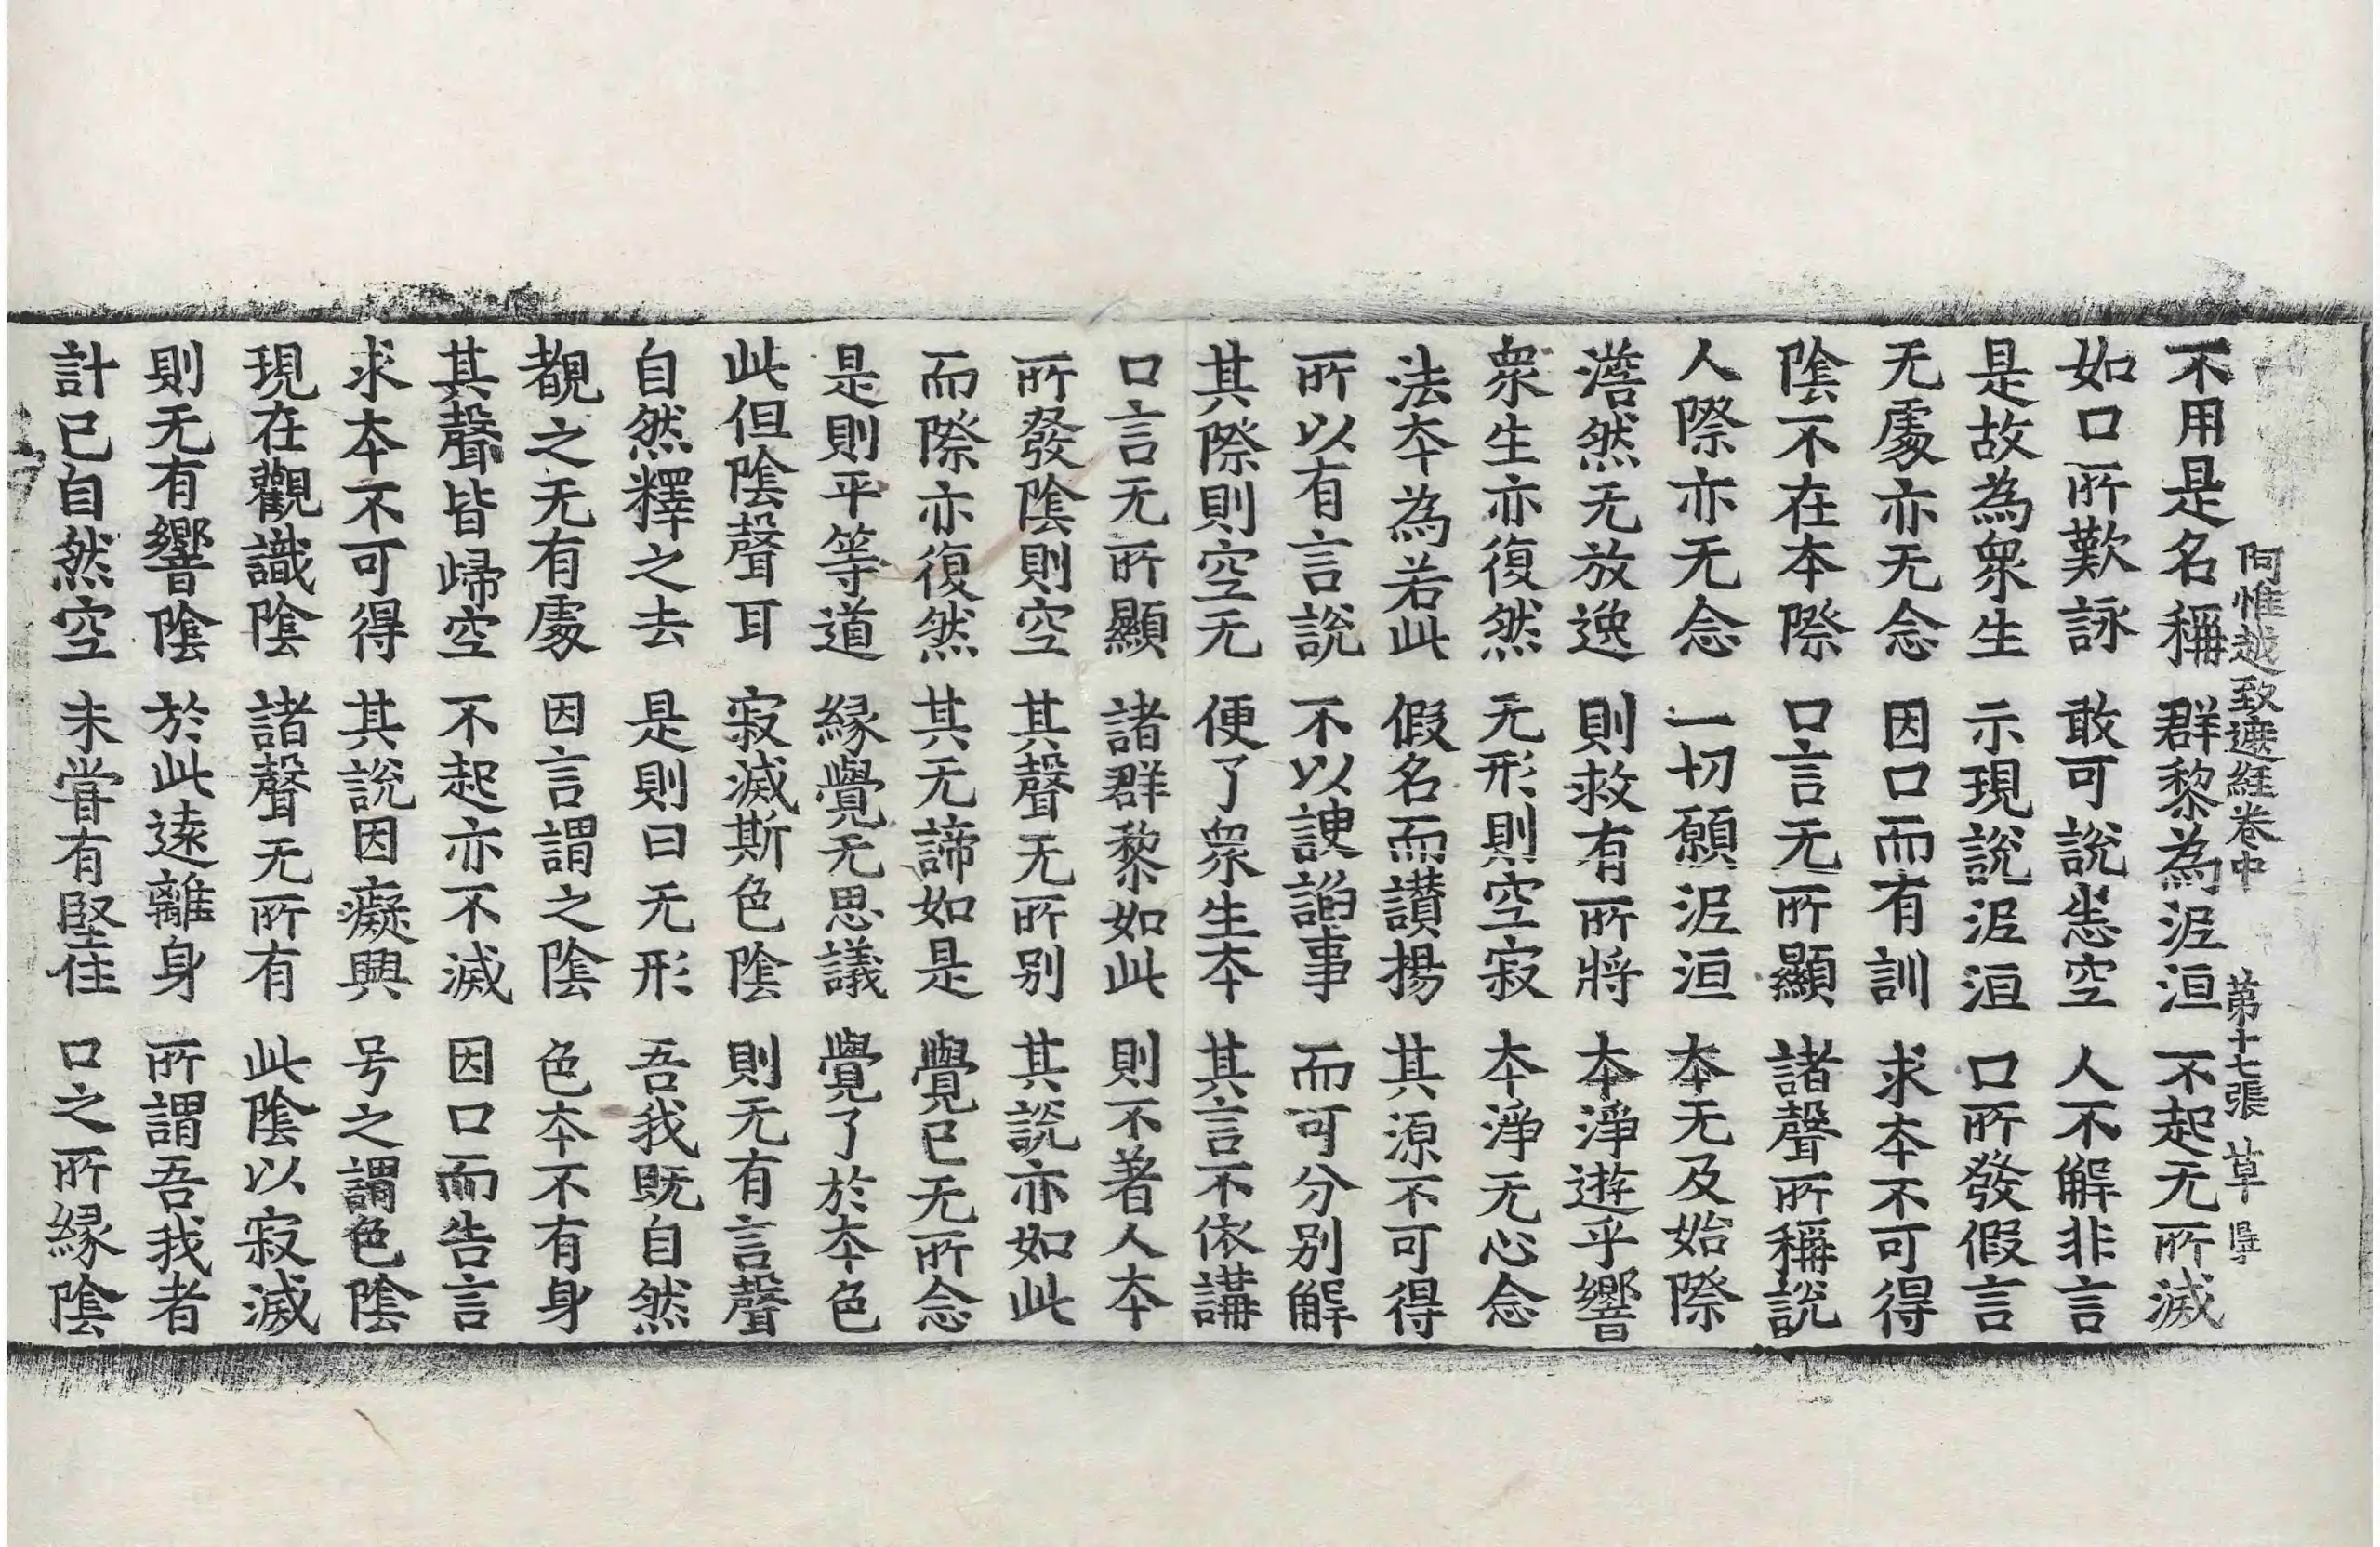 阿惟越致遮經卷中　第十七張　草
不用是名稱　群黎為泥洹　不起无所滅
如口所歎詠　敢可說恙空　人不解非言
是故為眾生　示現說泥洹　口所發假言
无處亦无念　因口而有訓　求本不可得
陰不在本際　口言无所顯　諸聲所稱說
人際亦无念　一切願泥洹　本无及始際
澹然无放逸　則救有所將　本淨遊乎響
眾生亦復然　无形則空寂　本淨无心念
法本為若此　假名而讚揚　其源不可得
所以有言說　不以諛諂事　而可分別解
其際則空无　便了眾生本　其言不依講
口言无所顯　諸群黎如此　則不著人本
所發陰則空　其聲无所別　其說亦如此
而際亦復然　其无諦如是　覺已无所念
是則平等道　緣覺无思議　覺了於本色
此但陰聲耳　寂滅斯色陰　則无有言聲
自然釋之去　是則曰无形　吾我既自然
覩之无有處　因言謂之陰　色本不有身
其聲皆歸空　不起亦不滅　因口而告言
求本不可得　其說因癡興　号之謂色陰
現在觀識陰　諸聲无所有　此陰以寂滅
則无有響陰　於此遠離身　所謂吾我者
計已自然空　未甞有堅住　口之所緣陰